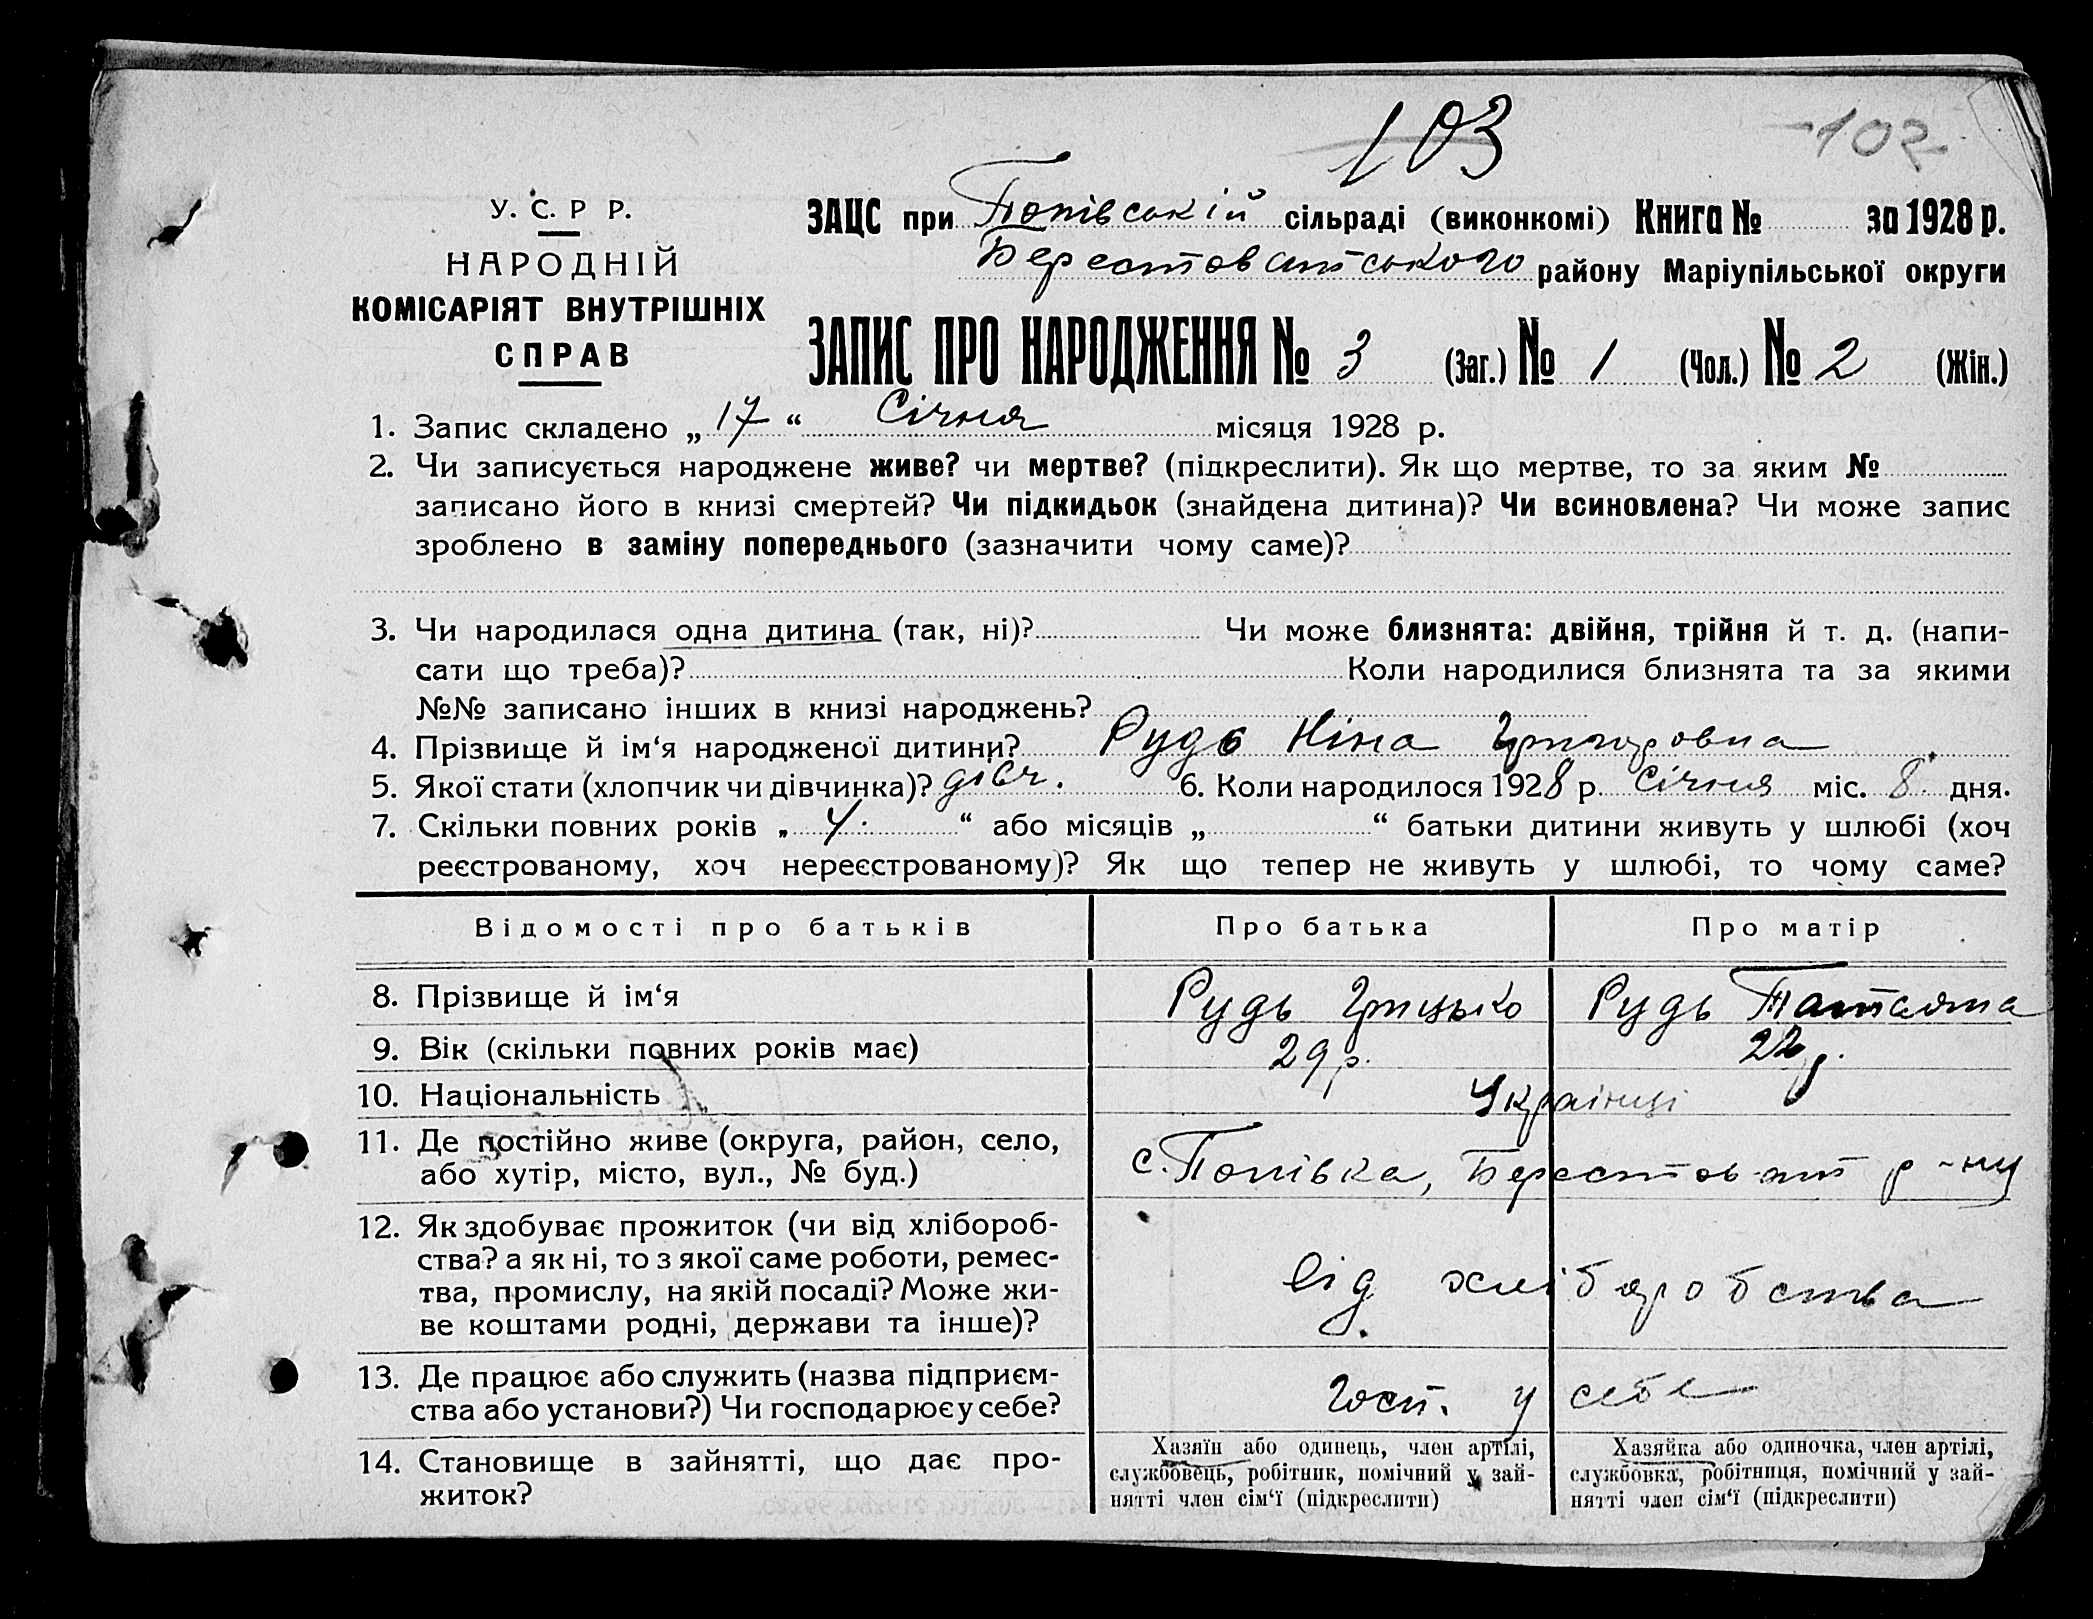 103
102
У. С. Р Р.
НАРОДНІЙ
КОМІСАРІЯТ ВНУТРІШНІХ
СПРАВ
ЗАЦС при Попівській сільраді (виконкомі) Книга № за 1928 р.
Берестоватського району Маріупільської округи
ЗАПИС ПРО НАРОДЖЕННЯ № 3 (Заг.) № 1 (Чол.) № 2 (Жін.)
1. Запис складено „17“ Січня місяця 1928 р.
2. Чи записується народжене живе? чи мертве? (підкреслити). Як що мертве, то за яким №
записано його в книзі смертей? Чи підкидьок (знайдена дитина)? Чи всиновлена? Чи може запис
зроблено в заміну попереднього (зазначити чому саме)?
3. Чи народилася одна дитина (так, ні)? Чи може близнята: двійня, трійня й т. д. (напи-
сати що треба)? Коли народилися близнята та за якими
№№ записано інших в книзі народжень?
4. Прізвище й ім‘я народженої дитини? Рудь Ніна Григоровна
5. Якої стати (хлопчик чи дівчинка)? дівч. 6. Коли народилося 1928 р. Січня міс. 8 дня.
7. Скільки повних років „4“ або місяців „ “ батьки дитини живуть у шлюбі (хоч
реєстрованому, хоч нереєстрованому)? Як що тепер не живуть у шлюбі, то чому саме?
Відомості про батьків Про батька Про матір
8. Прізвище й ім‘я Рудь Грицько Рудь Татьяна
9. Вік (скільки повних років має) 29 р. 22 р.
10. Національність Українці
11. Де постійно живе (округа, район, село,
або хутір, місто, вул., № буд.) с. Попівка, Берестоват р-ну
12. Як здобуває прожиток (чи від хлібороб-
ства? а як ні, то з якої саме роботи, ремес-
тва, промислу, на якій посаді? Може жи-
ве коштами родні, держави та інше)?
Від хліборобства
13. Де працює або служить (назва підприєм-
ства або установи?) Чи господарює у себе?
Госп. у себе
14. Становище в зайнятті, що дає про-
житок?
Хазяїн або одинець, член артілі,
службовець, робітник, помічний у зай-
нятті член сім‘ї (підкреслити)
Хазяйка або одиночка, член артілі,
службовка, робітниця, помічний у зай-
нятті член сім‘ї (підкреслити)